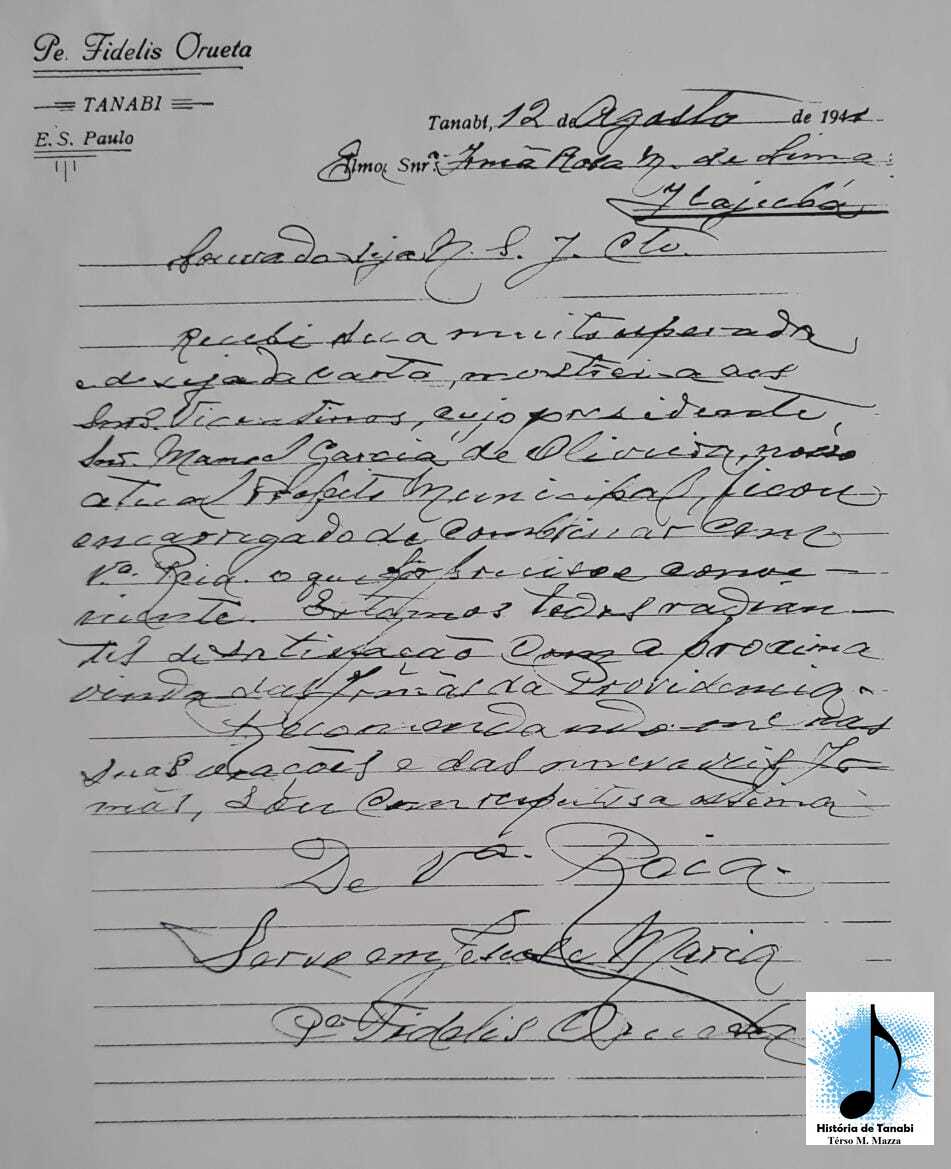 Pe. Fidelis Orueta
TANABI
E. S. Paulo
Tanabi, 12 de Agosto de 194
Ilmo. Snr. Irmã Rosa M. de Lima
Itajubá
Louvado seja N. S. J. Cto.
Recebi sua muito esperada
e desejada carta, mostrei-a aos
Snrs. Vicentinos, cujo presidente,
Snr. Manoel Garcia de Oliveira, nosso
atual Prefeito Municipal, ficou
encarregado de combinar com
Vª. Rcia. o que fôr preciso e conve-
niente. Estamos todos radian-
tes de satisfação com a proxima
vinda das Irmãs da Providencia.
Recomendando-me nas
suas orações e das Ir-
mãs, sou com respeitosa estima
De Vª. Rcia.
Servo em Jesus e Maria
Pe. Fidelis Orueta
História de Tanabi
Térso M. Mazza